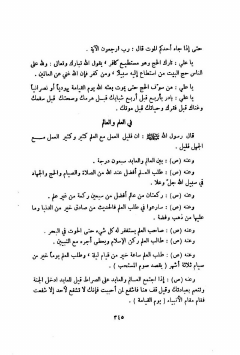 حتى إذا جاء أحدكم الموت قال : رب ارجعون الآية .
يا علي : تارك الحج وهو مستطيع كافر ، يقول الله تبارك وتعالى : ولله على
الناس حج البيت من استطاع إليه سبيلا ، ومن كفر فإن الله غني عن العالمين .
يا علي : من سوّف الحج حتى يموت بعثه الله يوم القيامة يهودياً أو نصرانياً
يا علي : بادر بأربع قبل أربع شبابك قبل هرمك وصحتك قبل سقمك
وغناك قبل فقرك وحياتك قبل موتك .
في العلم والعالم
قال رسول الله ﷺ : ان قليل العمل مع العلم كثير وكثير العمل مع
الجهل قليل .
وعنه (ص) : بين العالم والعابد سبعون درجة .
وعنه (ص) : طلب العلم أفضل عند الله من الصلاة والصيام والحج والجهاد
في سبيل الله جل وعلا .
وعنه (ص) : ركعتان من عالم أفضل من سبعين ركعة من غير عالم .
وعنه (ص) : سارعوا في طلب العلم فالحديث من صادق خير من الدنيا وما
عليها من ذهب وفضة .
وعنه (ص) : صاحب العلم يستغفر له كل شيء حتى الحوت في البحر .
وعنه (ص) : طالب العلم ركن الإسلام ويعطى أجره مع النبيين .
وعنه (ص) : طلب العلم ساعة خير من قيام ليلة وطلب العلم يوماً خير من
صيام ثلاثة أشهر
وعنه (ص) : إذا اجتمع العالم والعابد على الصراط قيل للعابد ادخل الجنة
وتنعم بعبادتك وقيل قف هنا فاشفع لمن أحببت فإنك لا تشفع لأحد إلا شفعت
فقام مقام الأنبياء ( يوم القيامة ) .
٣٤٥